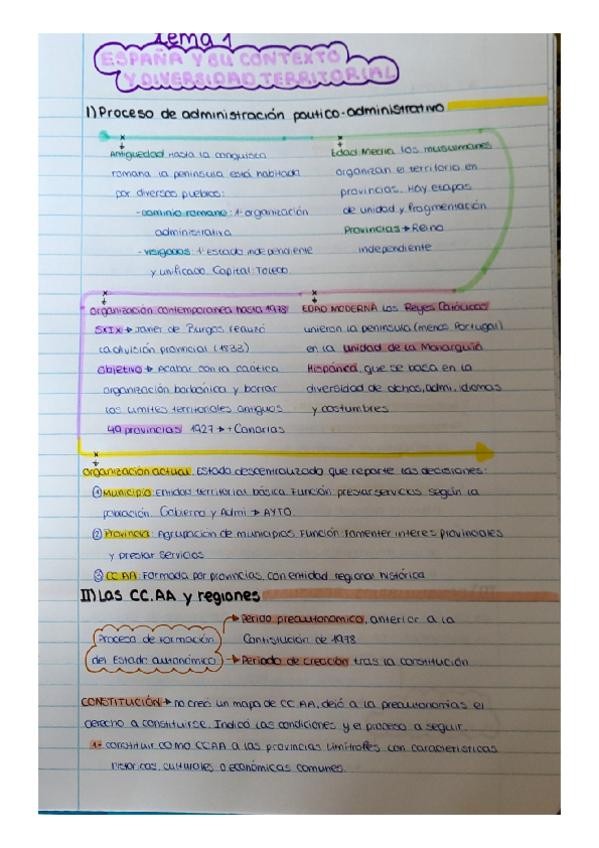 Tema 1
ESPAÑA Y SU CONTEXTO
Y DIVERSIDAD TERRITORIAL
I) Proceso de administración político-administrativo
Antigüedad Hasta la conquista
romana la península está habitada
por diversos pueblos:
- dominio romano: 1ª organización
administrativa
- visigodos: 1º estado independiente
y unificado. Capital: Toledo.
Edad Media los musulmanes
organizan el territorio en
provincias. Hay etapas
de unidad y fragmentación
Provincias → Reino
independiente
organización contemporanea hasta 1978
SXIX → Javier de Burgos realizó
la división provincial (1833)
Objetivo → Acabar con la caótica
organización borbónica y borrar
los límites territoriales antiguos
49 provincias 1927 → + Canarias
EDAD MODERNA Los Reyes Católicos
unieron la península (menos Portugal)
en la unidad de la Monarquía
Hispánica, que se basa en la
diversidad de dchos, admi, idiomas
y costumbres
organización actual. Estado descentralizado que reporte las decisiones:
① Municipio: Entidad territorial básica. Función prestar servicios según la
población. Gobierno y Admi → AYTO.
② Provincia: Agrupación de municipios. Función fomenter interes provinciales
y prestar servicios
③ CC.AA: Formada por provincias, con entidad regional histórica
II) Las CC.AA y regiones
Proceso de formación
del Estado autonómico
→ Periodo preautonómico, anterior a la
Contistución de 1978
→ Periodo de creación tras la constitución
CONSTITUCIÓN → no creó un mapa de CC.AA, dejó a la preautonomías el
derecho a constituirse. Indicó las condiciones y el proceso a seguir.
1- constituir como CCAA a las provincias limítrofes con características
históricas, culturales o económicas comunes.